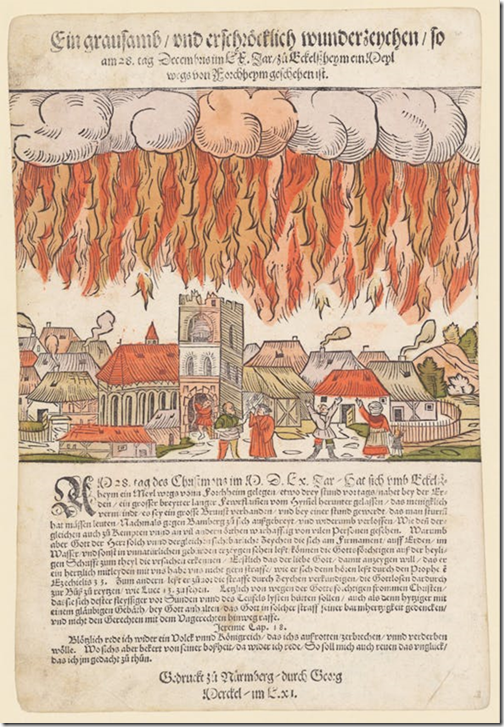 Ein grausamb / vnd erschröcklich wunderzeychen / so
am 28. tag Decembris im LX. Jar / zů Eckelßheym ein Meyl
wegs von Forchheym geschehen ist.
AM 28. tag des Christmons im M. D. Lx. Jar / Hat sich vmb Eckelß-
heym ein Meyl wegs vonn Forchheim gelegen / etwo drey stund vor tags / nahet bey der Er-
den / ein grosser breyter langer Fewrstraimen vom Hymel herunter gelassen / das menigklich
vermeint es sey ein grosse Brunst vorhanden / vnd bey einer stund gewerdt / das man sturm
hat müssen leuten / Nachmals gegen Bamberg zů sich außgebreyt / vnd widerumb verloschen / Wie den der-
gleichen auch zů Kempten vnnd an vil andern orten warhafftig von vilen Personen gesehen. Warumb
aber Gott der Herr solch vnd dergleichen schröckliche Zeychen die sich am Firmament / auff Erden / im
Wasser / vnd sonst in vnnatürlichen geburten erzeygen sehen lest / können die Gottsförchtigen auß der heyli-
gen Schrifft zum theyl die vrsachen erkennen / Erstlich das der liebe Gott / damit anzeygen will / das er
ein hertzlich mitleyden mit vns habe vnd nicht gern straffe / wie er sich denn hören lest durch den Prophet
Ezechielis 33. Zum andern / lest er zuvor die straffe durch Zeychen verkündigen / die Gottlosen dardurch
zur Bůß zů reytzen / wie Luce 13. zů sehen. Letzlich von wegen der Gottsförchtigen frommen Christen /
das sie sich dester fleyssiger vor Sünden vnd des Teüfels lysten hüten sollen / auch als denn hytziger mit
einem gläubigen Gebäth / bey Gott anhalten / das Gott in solcher straff seiner barmhertzigkeyt gedencken /
vnd nicht den Gerechten mit dem Vngerechten hinweg raffe.
Jeremie Cap. 18.
Plötzlich rede ich wider ein Volck vnnd Königreich / das ichs außrotten / zerbrechen / vnnd verderben
wölle. Wo sichs aber bekert von seiner boßheit / da wider ich rede / So soll mich auch rewen das vnglück /
das ich im gedacht zů thůn.
Gedruckt zů Nürmberg / durch Georg
Merckel / im Lxi.